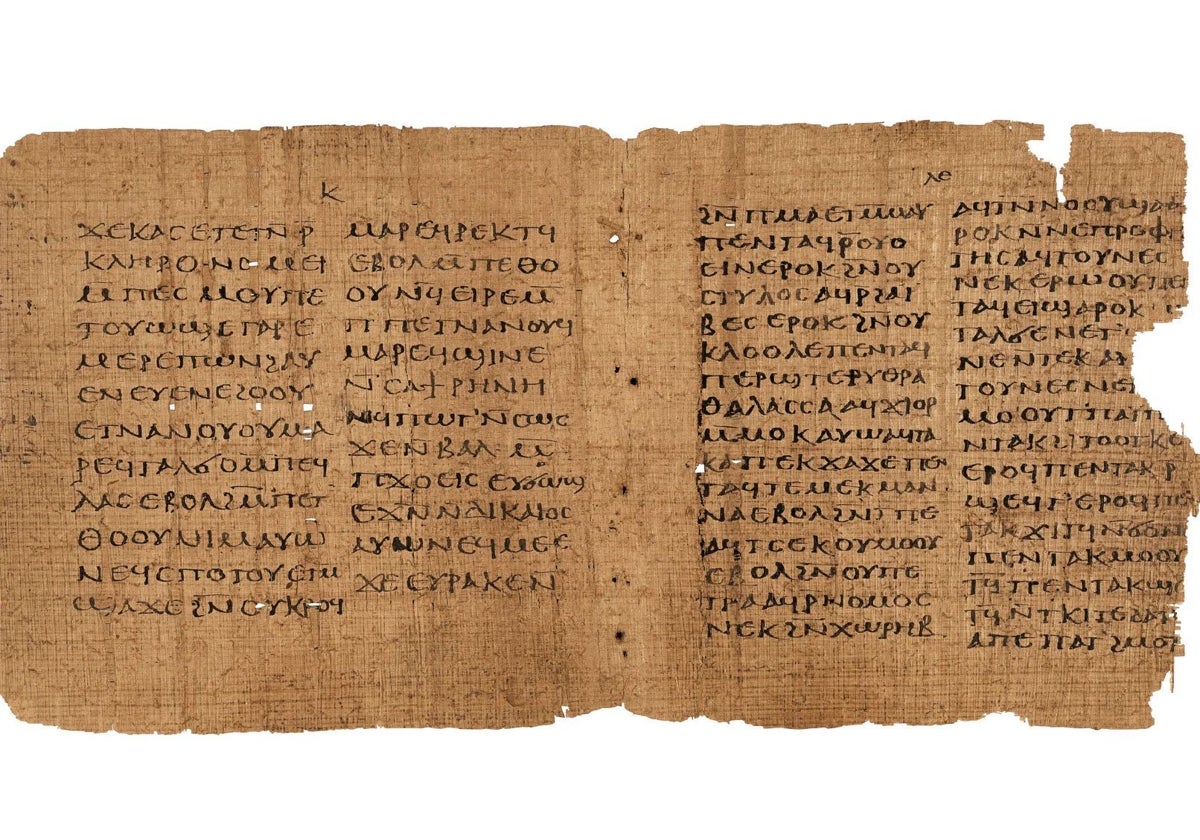 ⲕ
ϫⲉⲕⲁⲥ ⲉⲧⲉⲧⲛ̅ⲣ̅
ⲕⲗⲏⲣⲟⲛⲟⲙⲉⲓ
ⲙ̅ⲡⲉⲥⲙⲟⲩ ⲡⲉ
ⲧⲟⲩⲱϣ ⲉ ⲅⲁⲣ ⲉ
ⲙⲉⲣⲉ ⲡⲱⲛϩ ⲁⲩ
ⲉⲛⲉⲩ ⲉⲛⲉϩⲟⲟⲩ
ⲉⲧⲛⲁⲛⲟⲩⲟⲩ ⲙⲁ
ⲣⲉϥⲧⲁⲗϭⲟ ⲙ̅ⲡⲉϥ
ⲗⲁⲥ ⲉⲃⲟⲗ ϩⲙ̅ ⲡⲉⲧ
ⲑⲟⲟⲩ ⲛⲓⲙ ⲁⲩⲱ
ⲛⲉϥⲥⲡⲟⲧⲟⲩ ⲉⲧⲙ̅
ϣⲁϫⲉ ϩⲛ̅ ⲟⲩⲕⲣⲟϥ
ⲙⲁⲣⲉϥⲣⲉⲕⲧϥ
ⲉⲃⲟⲗ ⲙ̅ⲡⲉⲑⲟ
ⲟⲩ ⲛϥ̅ⲉⲓⲣⲉ ⲙ̅
ⲡⲡⲉⲧⲛⲁⲛⲟⲩϥ
ⲙⲁⲣⲉϥϣⲓⲛⲉ
ⲛ̅ⲥⲁ ϯⲣⲏⲛⲏ
ⲛϥ̅ⲡⲱⲧ ⲛ̅ⲥⲱⲥ
ϫⲉ ⲛ̅ⲃⲁⲗ ⲙ̅
ⲡϫⲟⲉⲓⲥ ⲉⲩϭⲱϣⲧ
ⲉϫⲛ̅ ⲛ̅ⲇⲓⲕⲁⲓⲟⲥ
ⲁⲩⲱ ⲛⲉϥⲙⲉⲉ
ϫⲉ ⲉⲩⲣⲁⲕⲉ ⲛ̅
ⲗⲉ
ϩⲛ̅ ⲡⲙⲁ ⲉⲧⲙ̅ⲙⲁⲩ
ⲡⲉⲛⲧⲁϥⲣ̅ⲟⲩⲟ
ⲉⲓⲛ ⲉⲣⲟⲕ ϩⲛ̅ ⲟⲩ
ⲥⲧⲩⲗⲟⲥ ⲁϥⲣ̅ϩⲁⲓ
ⲃⲉⲥ ⲉⲣⲟⲕ ϩⲛ̅ ⲟⲩ
ⲕⲗⲟⲟⲗⲉ ⲡⲉⲛⲧⲁϥ
ⲡⲉⲣϣ̅ ⲧⲉⲣⲩⲑⲣⲁ
ⲑⲁⲗⲁⲥⲥⲁ ⲁϥϫⲓⲟⲣ
ⲙ̅ⲙⲟⲕ ⲁⲩⲱ ⲁϥⲧⲁ
ⲕⲁ ⲡⲉⲕϫⲁϫⲉ ⲡⲉⲛ
ⲧⲁϥⲧⲙ̅ⲙⲉⲕ ⲙⲁⲛ
ⲛⲁ ⲉⲃⲟⲗ ϩⲛ̅ ⲧⲡⲉ
ⲁϥⲧⲥⲉⲕⲟⲩⲙⲟⲟⲩ
ⲉⲃⲟⲗ ϩⲛ̅ ⲟⲩⲡⲉ
ⲧⲣⲁ ⲁϥⲣ̅ⲛⲟⲙⲟⲥ
ⲛⲉⲕ ϩⲛ̅ ⲭⲱⲣⲏⲃ
ⲁϥⲧⲛ̅ⲛⲟⲟⲩ ϣⲁ
ⲣⲟⲕ ⲛ̅ⲛⲉⲡⲣⲟⲫⲏ
ⲧⲏⲥ ⲁϥⲧⲟⲩⲛⲉⲥ
ⲛⲉⲕⲉⲣⲱⲟⲩ ⲡⲉ
ⲧⲁϥⲉⲓ ϣⲁⲣⲟⲕ
ⲧⲁⲗϭⲉ ⲛⲉⲧ
ⲛⲉ ⲛⲧⲉⲕⲁ
ⲧⲟⲩⲛⲉⲥ ⲛⲉ
ⲙⲟⲟⲩⲧ ⲡⲁⲓ
ⲛⲧⲁⲕϩⲓⲧⲟⲟⲧⲕ
ⲉⲣⲟϥ ⲡⲉⲛⲧⲁⲕⲣ
ϣⲉϥⲧ ⲉⲣⲟϥ ⲡⲉ
ⲧⲁⲕϫⲓⲧϥ ⲛ̅ϭⲟⲛ
ⲡⲉⲛⲧⲁⲕⲙⲟⲟⲩ
ⲧϥ ⲡⲉⲛⲧⲁⲕ
ⲧϥ ⲛ̅ⲧⲕ
ⲁⲡⲉⲛⲧⲁϥϩⲙⲟ